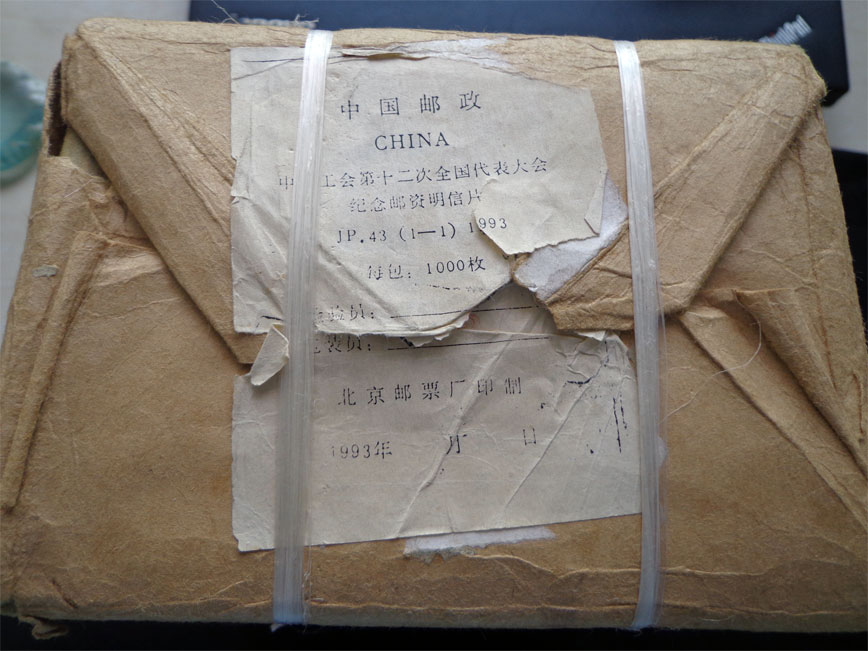 中国邮政
CHINA
中 工会第十二次全国代表大会
纪念邮资明信片
JP.43 (1—1) 1993
每包：1000枚
验员：
装员：
北京邮票厂印制
1993年 月 日